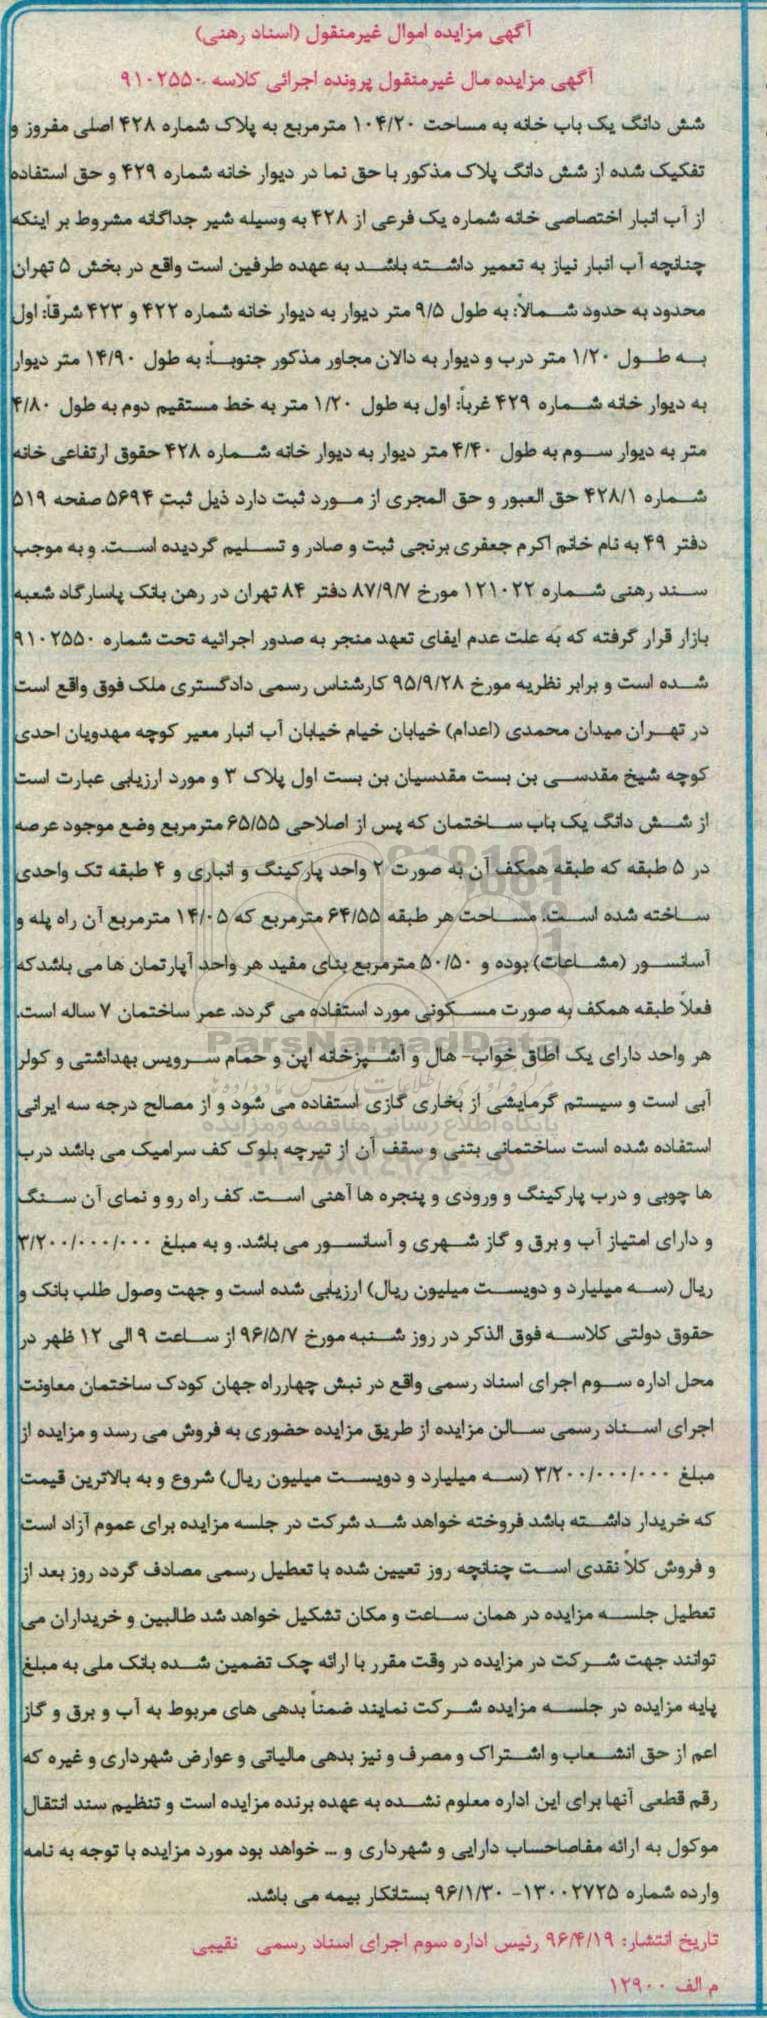 آگهی مزایده اموال غیرمنقول (اسناد رهنی)
آگهی مزایده مال غیرمنقول پرونده اجرائی کلاسه ۹۱۰۲۵۵۰
شش دانگ یک باب خانه به مساحت ۱۰۴/۲۰ مترمربع به پلاک شماره ۴۲۸ اصلی مفروز و
تفکیک شده از شش دانگ پلاک مذکور با حق نما در دیوار خانه شماره ۴۲۹ و حق استفاده
از آب انبار اختصاصی خانه شماره یک فرعی از ۴۲۸ به وسیله شیر جداگانه مشروط بر اینکه
چنانچه آب انبار نیاز به تعمیر داشته باشد به عهده طرفین است واقع در بخش ۵ تهران
محدود به حدود شمالاً: به طول ۹/۵ متر دیوار به دیوار خانه شماره ۴۲۲ و ۴۲۳ شرقاً: اول
به طول ۱/۲۰ متر درب و دیوار به دالان مجاور مذکور جنوباً: به طول ۱۴/۹۰ متر دیوار
به دیوار خانه شماره ۴۲۹ غرباً: اول به طول ۱/۲۰ متر به خط مستقیم دوم به طول ۴/۸۰
متر به دیوار سوم به طول ۴/۴۰ متر دیوار به دیوار خانه شماره ۴۲۸ حقوق ارتفاعی خانه
شماره ۴۲۸/۱ حق العبور و حق المجری از مورد ثبت دارد ذیل ثبت ۵۶۹۴ صفحه ۵۱۹
دفتر ۴۹ به نام خانم اکرم جعفری برنجی ثبت و صادر و تسلیم گردیده است. و به موجب
سند رهنی شماره ۱۲۱۰۲۲ مورخ ۸۷/۹/۷ دفتر ۸۴ تهران در رهن بانک پاسارگاد شعبه
بازار قرار گرفته که به علت عدم ایفای تعهد منجر به صدور اجرائیه تحت شماره ۹۱۰۲۵۵۰
شده است و برابر نظریه مورخ ۹۵/۹/۲۸ کارشناس رسمی دادگستری ملک فوق واقع است
در تهران میدان محمدی (اعدام) خیابان خیام خیابان آب انبار معیر کوچه مهدویان احدی
کوچه شیخ مقدسی بن بست مقدسیان بن بست اول پلاک ۳ و مورد ارزیابی عبارت است
از شش دانگ یک باب ساختمان که پس از اصلاحی ۶۵/۵۵ مترمربع وضع موجود عرصه
در ۵ طبقه که طبقه همکف آن به صورت ۲ واحد پارکینگ و انباری و ۴ طبقه تک واحدی
ساخته شده است. مساحت هر طبقه ۶۴/۵۵ مترمربع که ۱۴/۰۵ مترمربع آن راه پله و
آسانسور (مشاعات) بوده و ۵۰/۵۰ مترمربع بنای مفید هر واحد آپارتمان ها می باشدکه
فعلاً طبقه همکف به صورت مسکونی مورد استفاده می گردد. عمر ساختمان ۷ ساله است.
ParsNamadData
هر واحد دارای یک اطاق خواب- هال و آشپزخانه اپن و حمام سرویس بهداشتی و کولر
آبی است و سیستم گرمایشی از بخاری گازی استفاده می شود و از مصالح درجه سه ایرانی
پایگاه اطلاع رسانی مناقصه و مزایده
استفاده شده است ساختمانی بتنی و سقف آن از تیرچه بلوک کف سرامیک می باشد درب
ها چوبی و درب پارکینگ و ورودی و پنجره ها آهنی است. کف راه رو و نمای آن سنگ
و دارای امتیاز آب و برق و گاز شهری و آسانسور می باشد. و به مبلغ ۳/۲۰۰/۰۰۰/۰۰۰
ریال (سه میلیارد و دویست میلیون ریال) ارزیابی شده است و جهت وصول طلب بانک و
حقوق دولتی کلاسه فوق الذکر در روز شنبه مورخ ۹۶/۵/۷ از ساعت ۹ الی ۱۲ ظهر در
محل اداره سوم اجرای اسناد رسمی واقع در نبش چهارراه جهان کودک ساختمان معاونت
اجرای اسناد رسمی سالن مزایده از طریق مزایده حضوری به فروش می رسد و مزایده از
مبلغ ۳/۲۰۰/۰۰۰/۰۰۰ (سه میلیارد و دویست میلیون ریال) شروع و به بالاترین قیمت
که خریدار داشته باشد فروخته خواهد شد شرکت در جلسه مزایده برای عموم آزاد است
و فروش کلاً نقدی است چنانچه روز تعیین شده با تعطیل رسمی مصادف گردد روز بعد از
تعطیل جلسه مزایده در همان ساعت و مکان تشکیل خواهد شد طالبین و خریداران می
توانند جهت شرکت در مزایده در وقت مقرر با ارائه چک تضمین شده بانک ملی به مبلغ
پایه مزایده در جلسه مزایده شرکت نمایند ضمناً بدهی های مربوط به آب و برق و گاز
اعم از حق انشعاب و اشتراک و مصرف و نیز بدهی مالیاتی و عوارض شهرداری و غیره که
رقم قطعی آنها برای این اداره معلوم نشده به عهده برنده مزایده است و تنظیم سند انتقال
موکول به ارائه مفاصاحساب دارایی و شهرداری و ... خواهد بود مورد مزایده با توجه به نامه
وارده شماره ۱۳۰۰۲۷۲۵- ۹۶/۱/۳۰ بستانکار بیمه می باشد.
تاریخ انتشار: ۹۶/۴/۱۹ رئیس اداره سوم اجرای اسناد رسمی نقیبی
م الف ۱۲۹۰۰